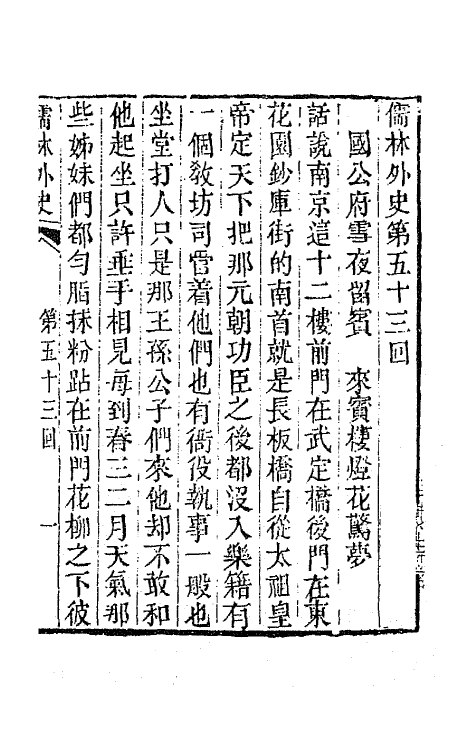 儒林外史第五十三回
國公府雪夜留賓　來賓樓燈花驚夢
話說南京這十二樓前門在武定橋後門在東
花園鈔庫街的南首就是長板橋自從太祖皇
帝定天下把那元朝功臣之後都沒入樂籍有
一個敎坊司管着他們也有衙役執事一般也
坐堂打人只是那王孫公子們來他却不敢和
他起坐只許垂手相見每到春三二月天氣那
些姊妹們都勻脂抹粉跕在前門花柳之下彼
儒林外史　第五十三回　一